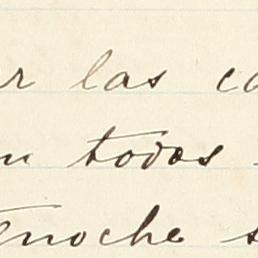 r las co
n todos
enoche s